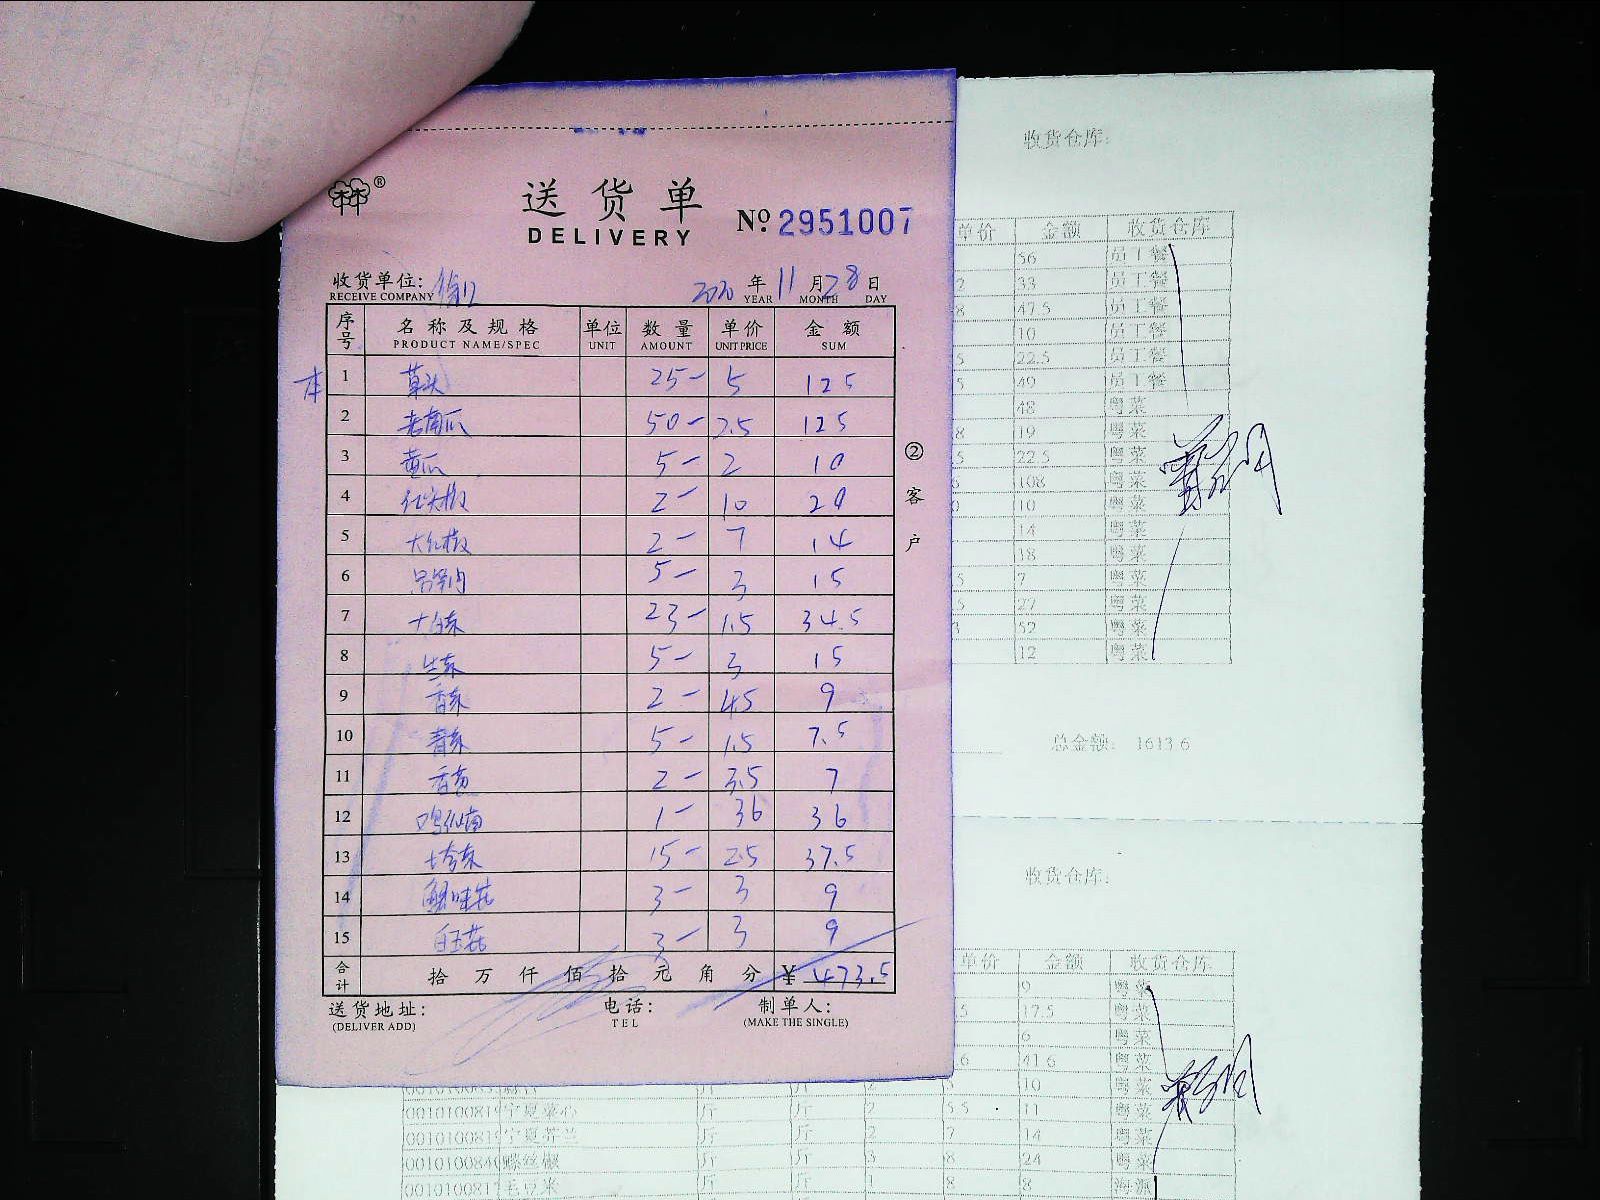 送货单
DELIVERY
№ 2951007
收货单位:
RECEIVE COMPANY
2020 年 11 月 28 日
YEAR MONTH DAY
序号 名称及规格 单位 数量 单价 金额
PRODUCT NAME/SPEC UNIT AMOUNT UNIT PRICE SUM
本
1 草头 25- 5 125
2 老南瓜 50- 2.5 125
3 黄瓜 5- 2 10
4 红尖椒 2- 10 20
5 大红椒 2- 7 14
6 5- 3 15
7 大白菜 23- 1.5 34.5
8 生菜 5- 3 15
9 香菜 2- 4.5 9
10 青菜 5- 1.5 7.5
11 香葱 2- 3.5 7
12 1- 36 36
13 15- 2.5 37.5
14 蟹味菇 3- 3 9
15 白玉菇 3- 3 9
合计 拾 万 仟 佰 拾 元 角 分 ¥ 473.5
送货地址: 电话: 制单人:
(DELIVER ADD) TEL (MAKE THE SINGLE)
②客户
收货仓库:
单价 金额 收货仓库
56 员工餐
2 33 员工餐
8 47.5 员工餐
10 员工餐
5 22.5 员工餐
5 49 员工餐
48 粤菜
8 19 粤菜
5 22.5 粤菜
6 108 粤菜
0 10 粤菜
14 粤菜
18 粤菜
5 7 粤菜
5 27 粤菜
3 52 粤菜
12 粤菜
总金额: 1613.6
收货仓库:
单价 金额 收货仓库
9 粤菜
.5 17.5 粤菜
6 粤菜
.6 41.6 粤菜
斤 斤 2 5 10 粤菜
001010081 宁夏菜心 斤 斤 2 5.5 11 粤菜
001010081 宁夏芥兰 斤 斤 2 7 14 粤菜
001010084 螺丝椒 斤 斤 3 8 24 粤菜
001010081 毛豆米 斤 斤 1 8 8 海派